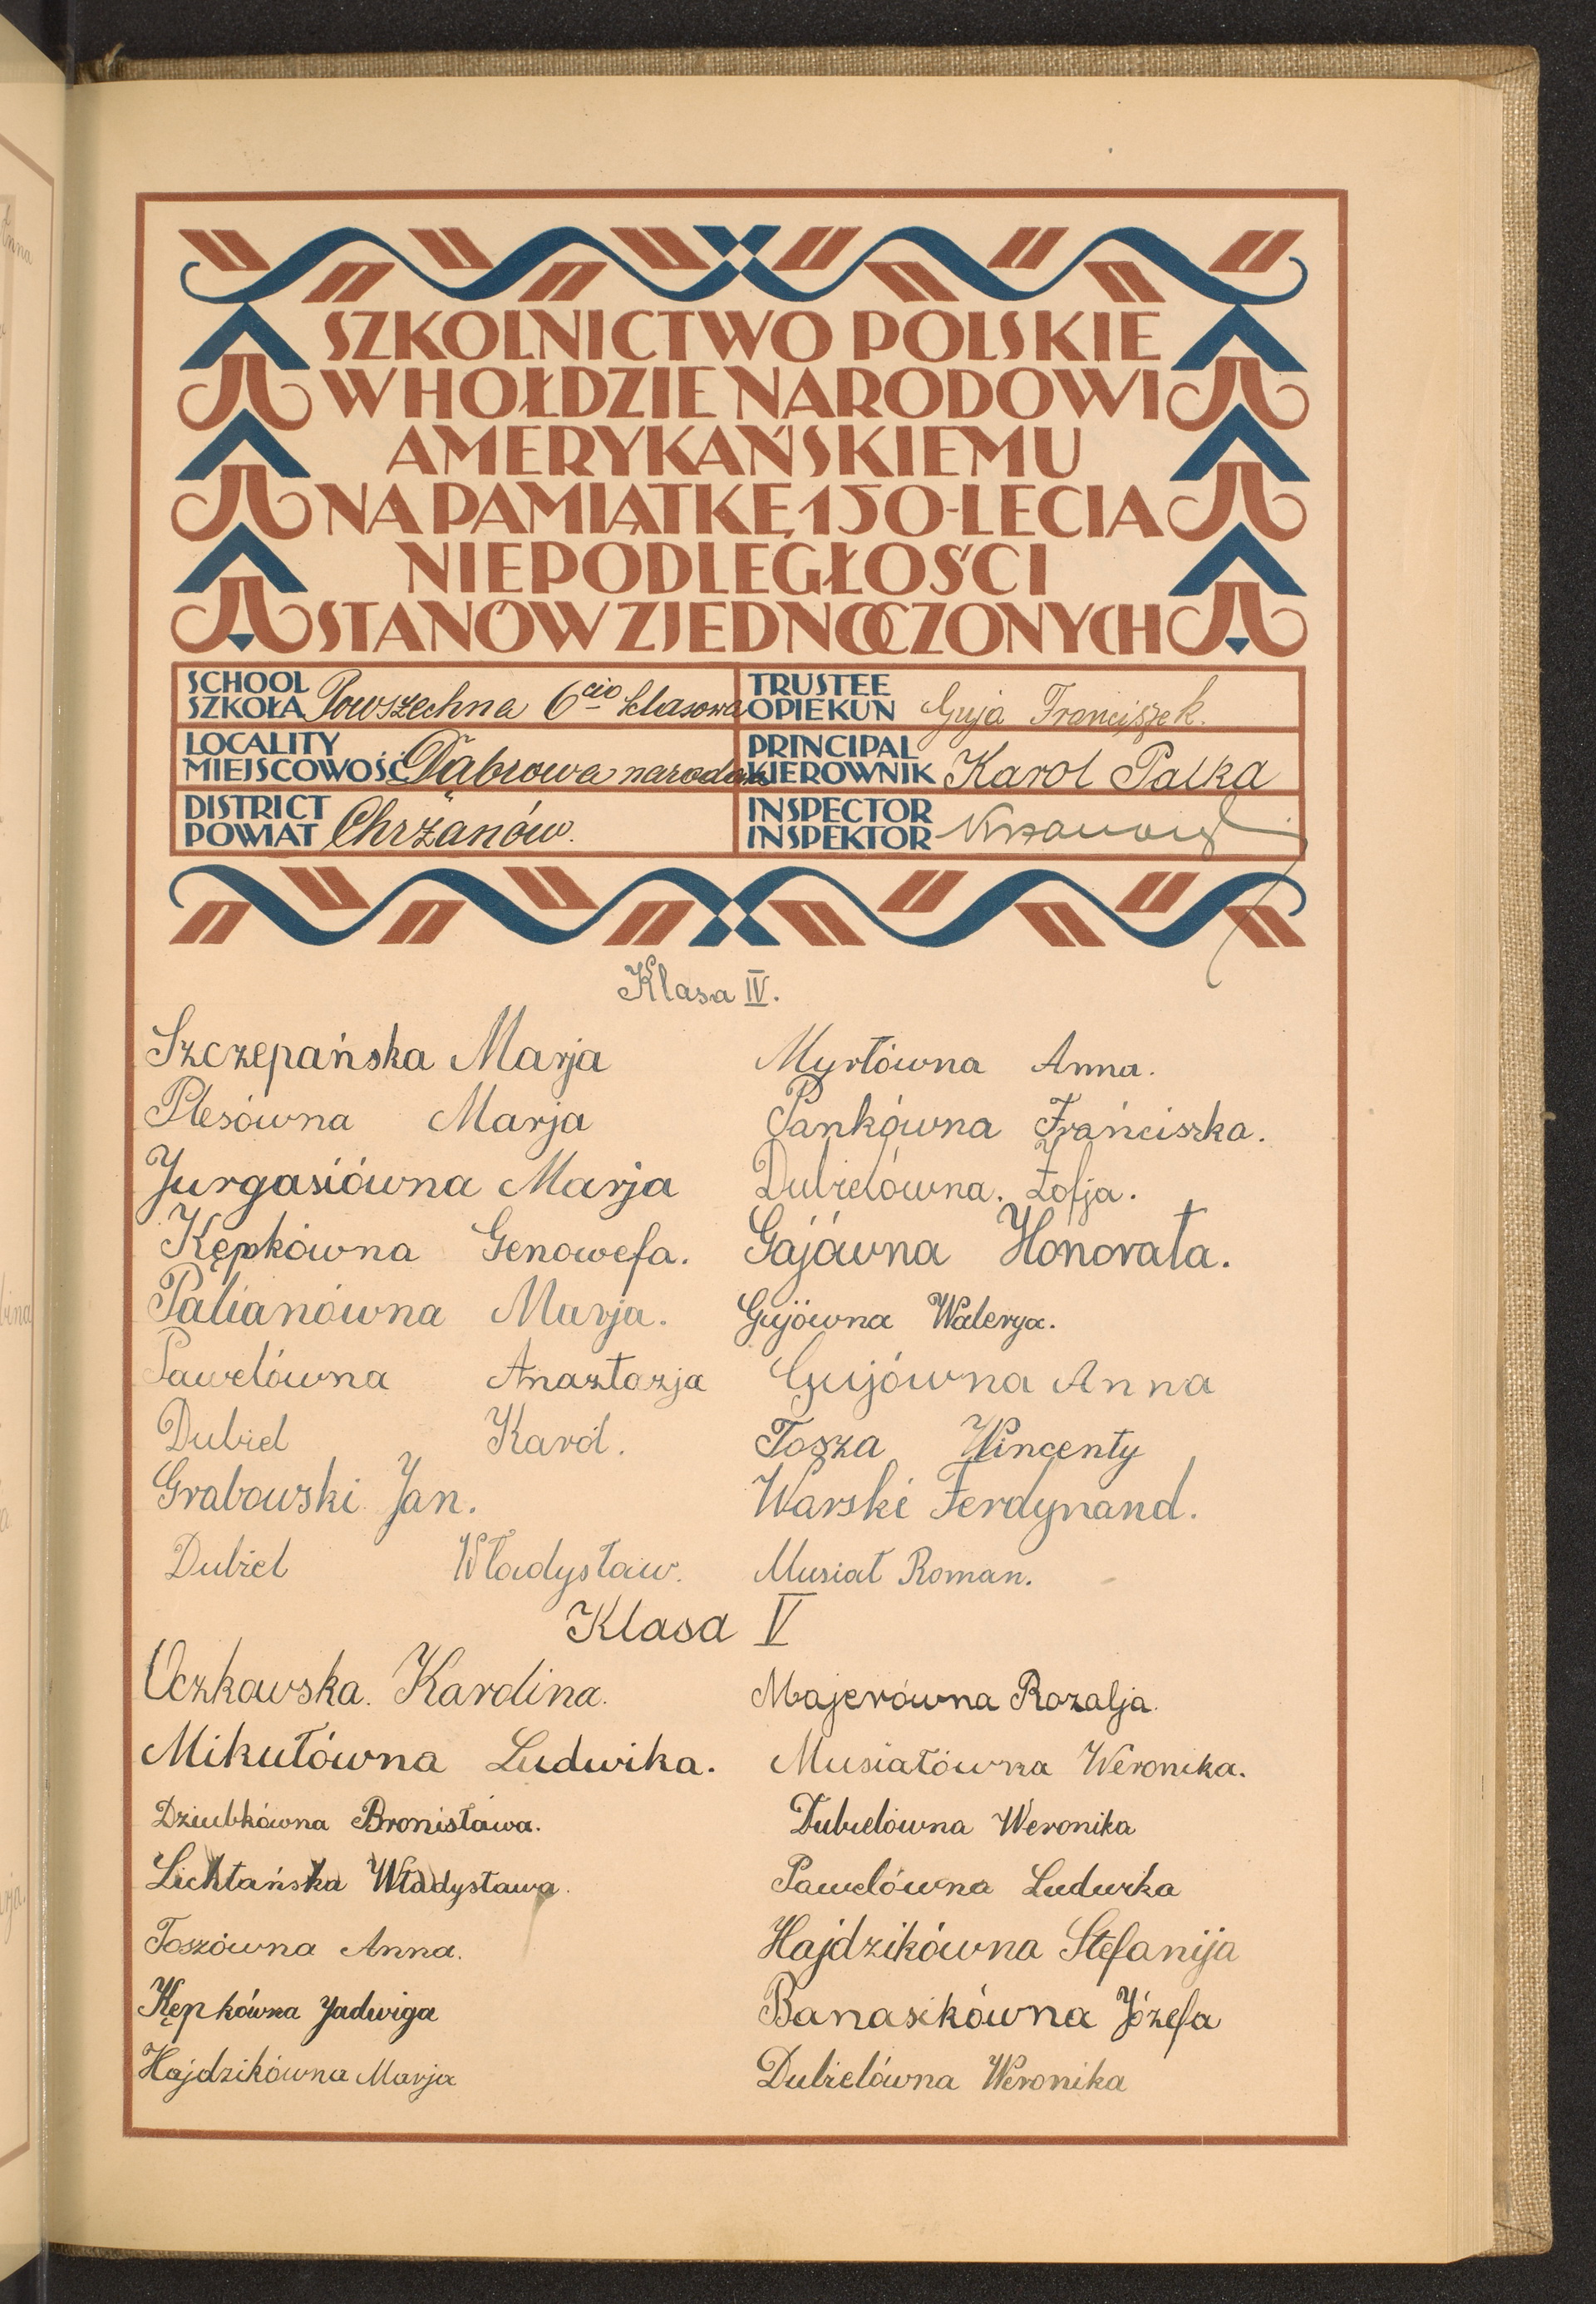 SZKOLNICTWO POLSKIE
W HOŁDZIE NARODOWI
AMERYKAŃSKIEMU
NA PAMIĄTKĘ 150-LECIA
NIEPODLEGŁOŚCI
STANÓW ZJEDNOCZONYCH
SCHOOL
SZKOŁA Powszechna 6cio klasowa
TRUSTEE
OPIEKUN Guja Franciszek.
LOCALITY
MIEJSCOWOŚĆ Dąbrowa narodow
PRINCIPAL
KIEROWNIK Karol Palka
DISTRICT
POWIAT Chrzanów.
INSPECTOR
INSPEKTOR
Klasa IV.
Szczepańska Marja
Plesówna Marja
Jurgasiówna Marja
Kępkówna Genowefa.
Palianówna Marja.
Pawelówna Anaztazja
Dubiel Karol.
Grabowski Jan.
Dubiel Władysław.
Myrtówna Anna.
Pankówna Franciszka.
Dubielówna. Zofja.
Gajówna Honorata.
Gujówna Walerya.
Gujówna Anna
Tosza Wincenty
Warski Ferdynand.
Musiał Roman.
Klasa V
Oczkowska. Karolina.
Mikułówna Ludwika.
Dziubkówna Bronisława.
Lichtańska Władysława.
Toszówna Anna.
Kępkówna Jadwiga
Hajdzikówna Marja
Majerówna Rozalja.
Musiałówna Weronika.
Dubielówna Weronika
Pawelówna Ludwika
Hajdzikówna Stefanija
Banasikówna Józefa
Dubielówna Weronika